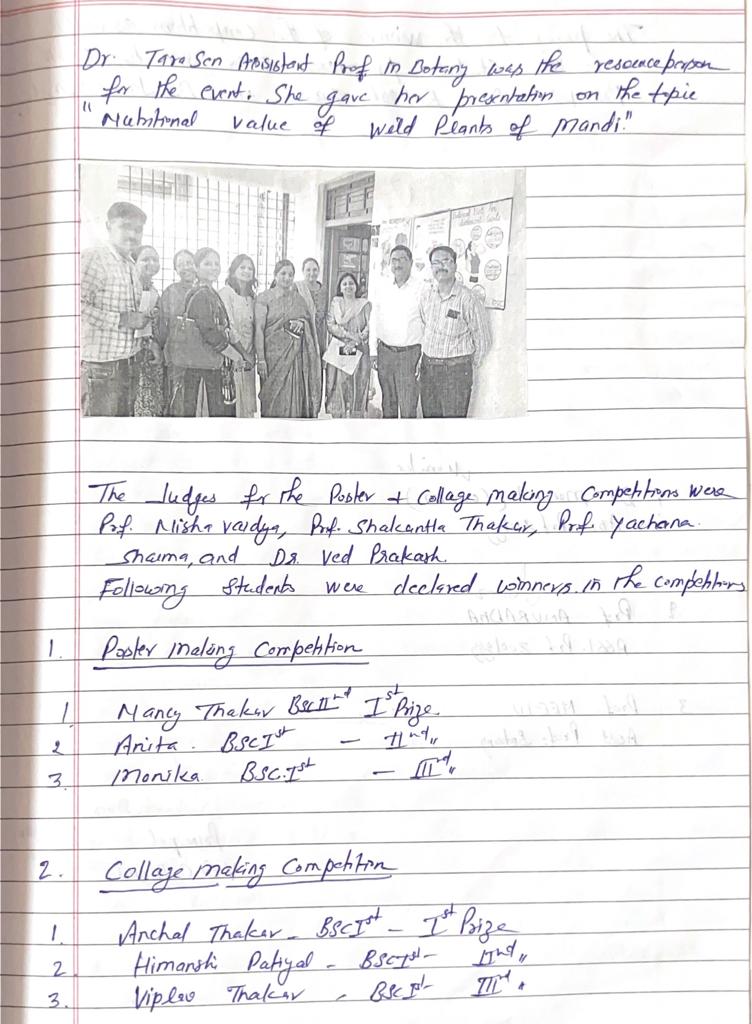 Dr. Tara Sen Assistant Prof in Botany was the resource person
for the event. She gave her presentation on the topic
"Nutritional value of Wild Plants of Mandi."
The Judges for the Poster + Collage making Competitions were
Prof. Nisha Vaidya, Prof. Shakuntla Thakur, Prof Yachana
Sharma, and Dr. Ved Prakash.
Following Students were declared winners in the competitions
1. Poster making Competition
1. Nancy Thakur BSc IInd Ist Prize
2 Anita. BSc Ist - IInd "
3. Monika BSc. Ist - IIIrd "
2. Collage making Competition
1. Anchal Thakur - BSc Ist - Ist Prize
2. Himanshi Patiyal - BSc Ist - IInd "
3. Viplav Thakur - BSc Ist IIIrd "